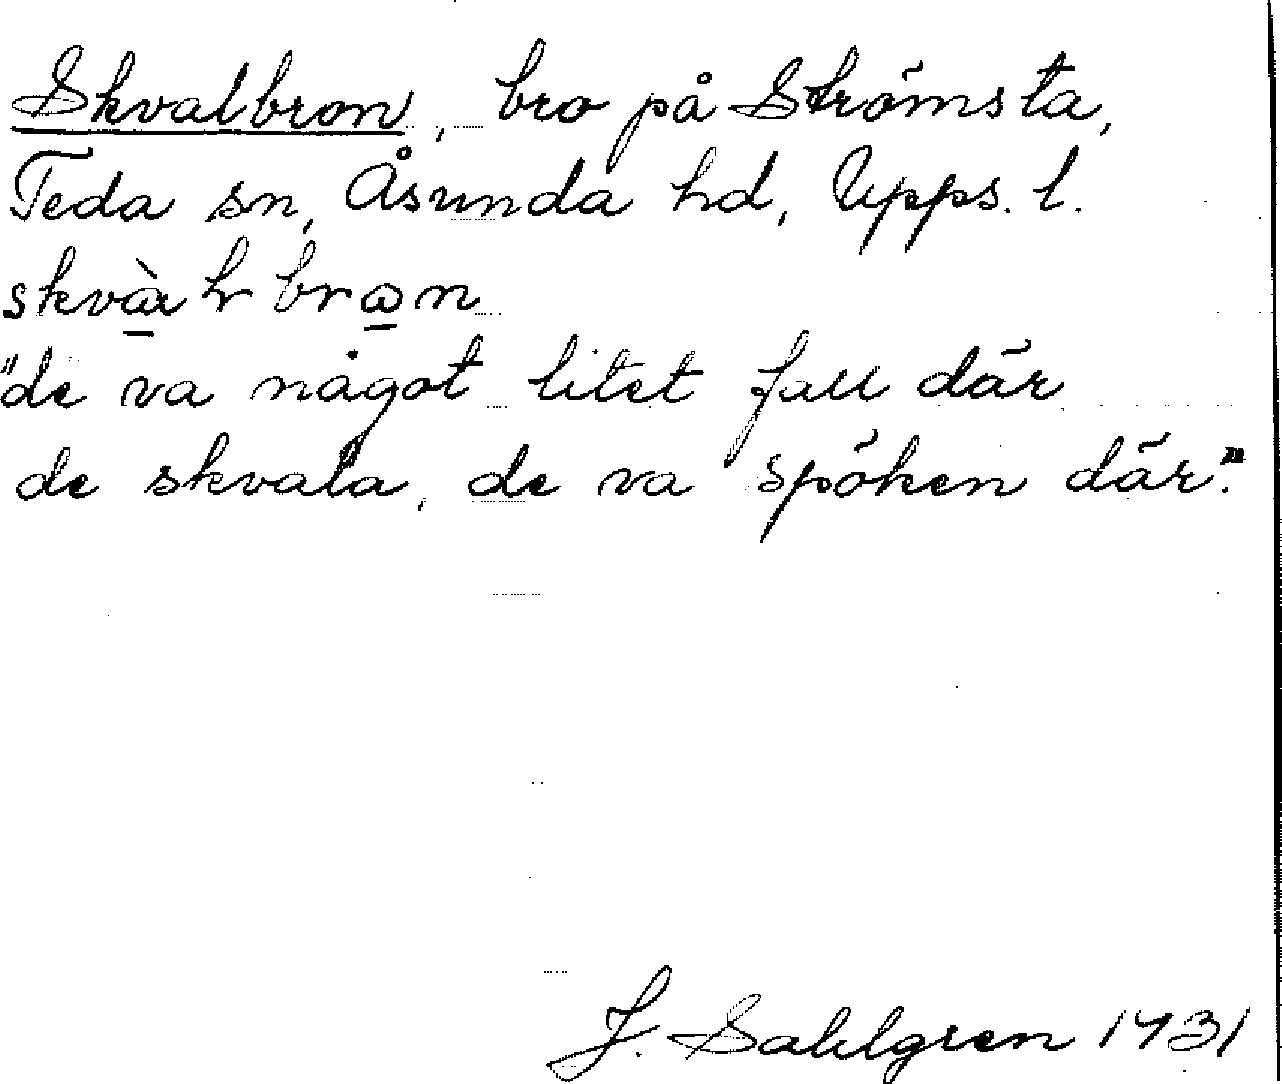 Skvalbron, bro på Strömsta,
Teda sn, Åsunda hd, Upps. l.
"de va något litet fall där
de skvala, de va spöken där."
J. Sahlgren 1931